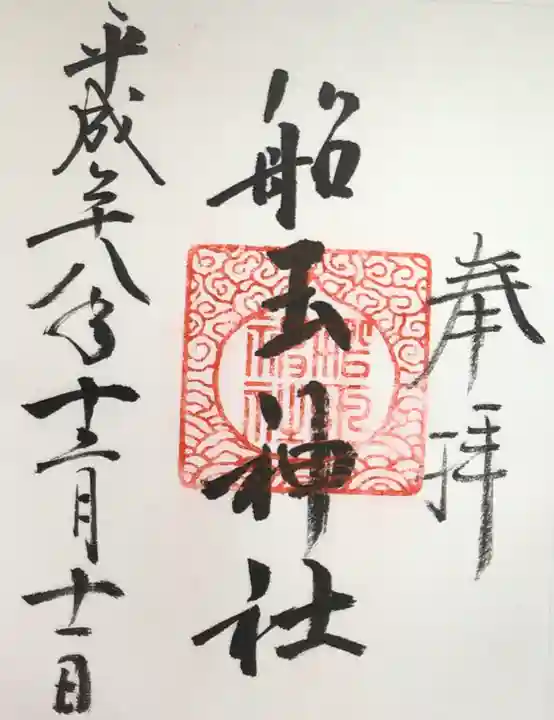 奉拝
船玉神社
平成二十八年十二月十一日